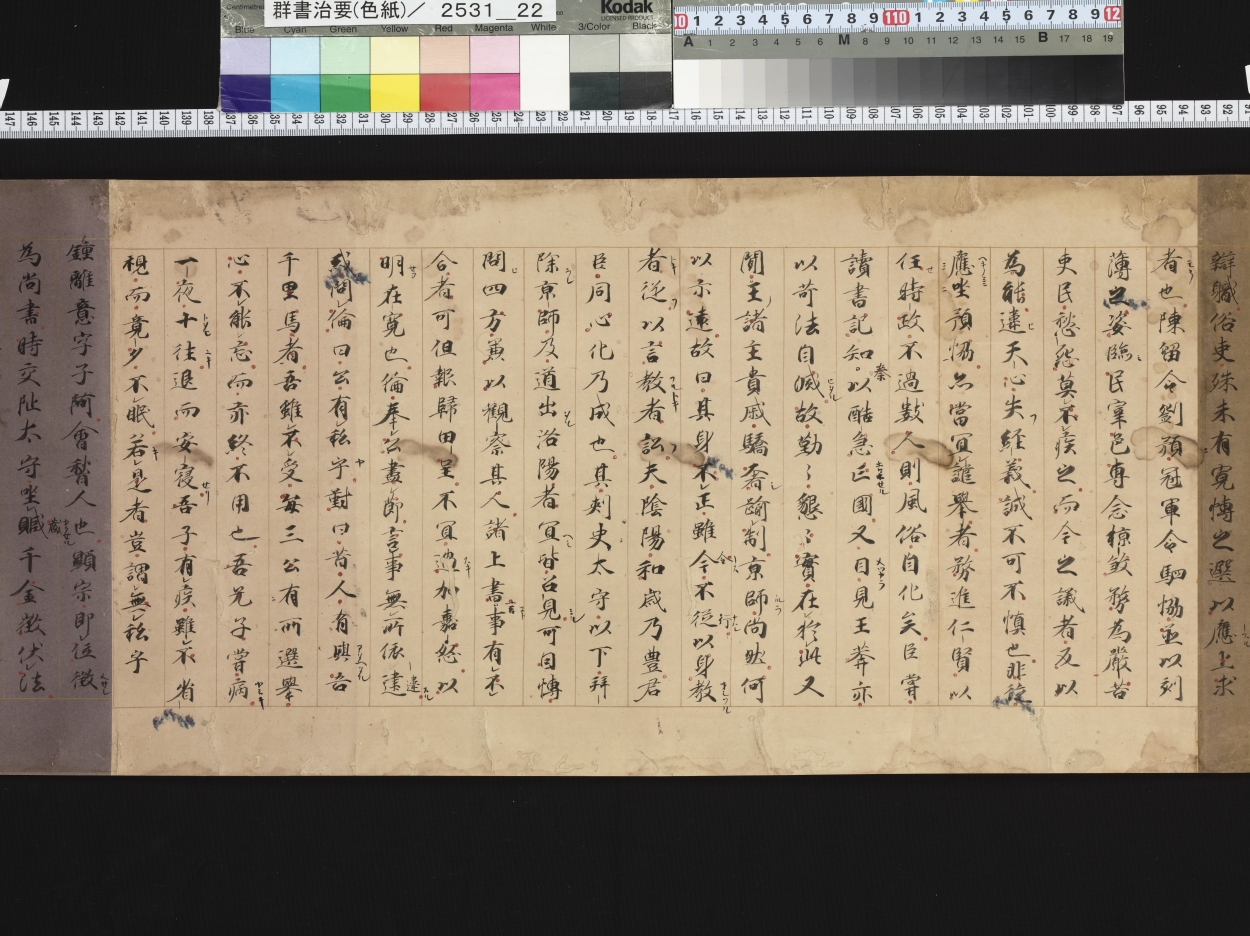 群書治要(色紙)／ 2531__22
Kodak
LICENSED PRODUCT
Blue Cyan Green Yellow Red Magenta White 3/Color Black
辯職俗吏殊未有寛博之選以應上求
者也陳留令劉預冠軍令駟恊並以刻
薄之姿臨民宰邑専念掠殺務為嚴苦
吏民愁怨莫不疾之而今之議者反以
為能違天心失経義誠不可不慎也非徒
應坐預恊亦當宜譴舉者務進仁賢以
任時政不過數人則風俗自化矣臣嘗
讀書記知秦以酷急亡國又目見王莽亦
以苛法自滅故勤々懇々實在於此又
聞王諸主貴戚驕奢踰制京師尚然何
以示遠故曰其身不正雖令不従以身教
者従以言教者訟夫陰陽和歳乃豊君
臣同心化乃成也其刺史太守以下拜
除京師及道出洛陽者宜皆召見可因博
問四方兼以觀察其人諸上書事有不
合者可但報歸田里不宜過加喜怒以
明在寛也倫奉公盡節言事無所依違
或問倫曰公有私乎對曰昔人有與吾
千里馬者吾雖不受毎三公有所選舉
心不能忘而亦終不用也吾兄子嘗病
一夜十往退而安寝吾子有疾雖不省
視而竟夕不眠若是者豈謂無私乎
鍾離意字子阿會稽人也顯宗即位徴
為尚書時交阯太守坐贓千金徴伏法